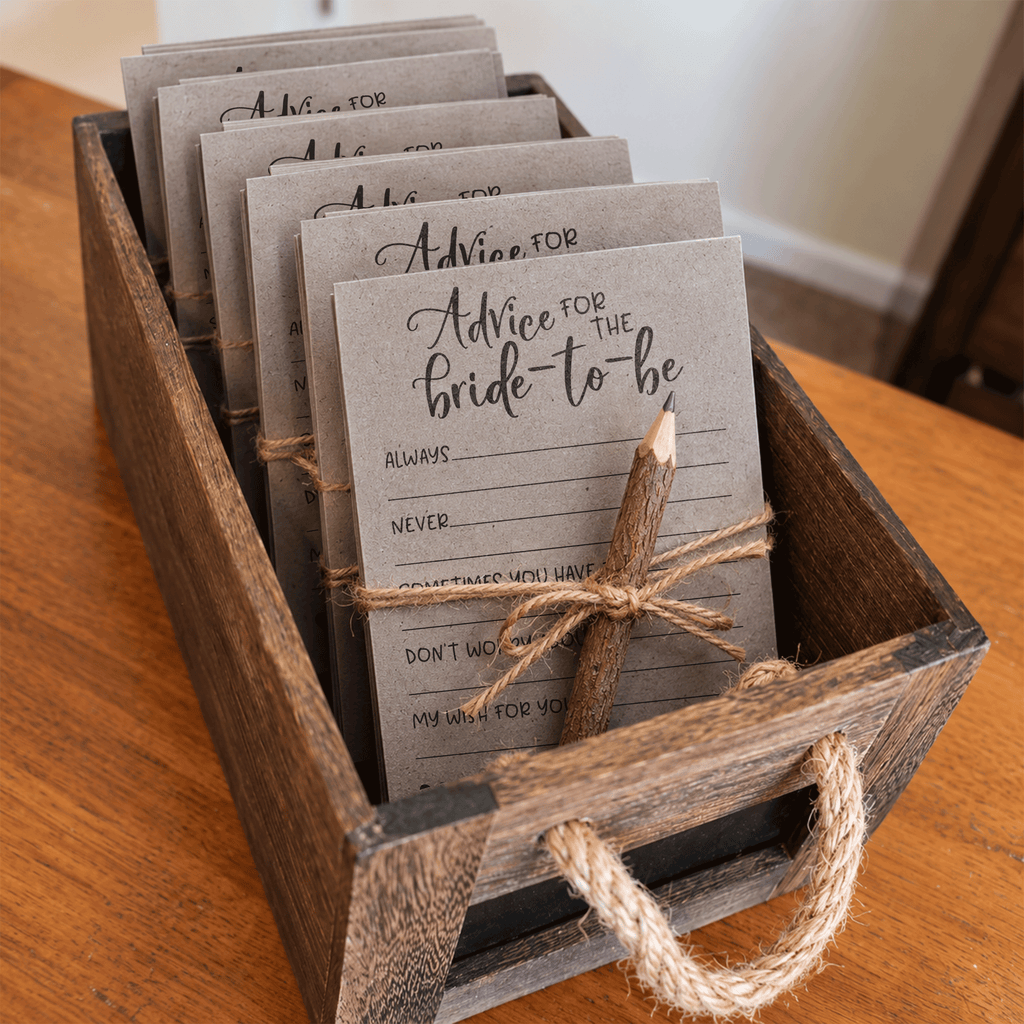 Advice FOR
Advice FOR
Advice FOR
Advice FOR
Advice FOR
Advice FOR
THE
bride-to-be
ALWAYS
NEVER
SOMETIMES YOU HAVE
DON'T WORRY
MY WISH FOR YOU